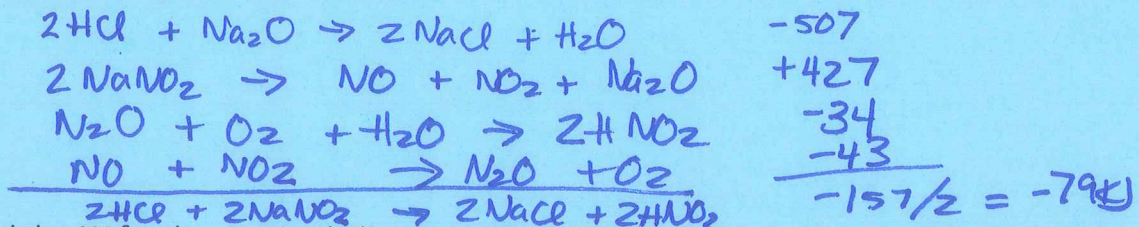 2HCl + Na₂O → 2NaCl + H₂O -507
2NaNO₂ → NO + NO₂ + Na₂O +427
N₂O + O₂ + H₂O → 2HNO₂ -34
NO + NO₂ → N₂O + O₂ -43
2HCl + 2NaNO₂ → 2NaCl + 2HNO₂ -157/2 = -79kJ